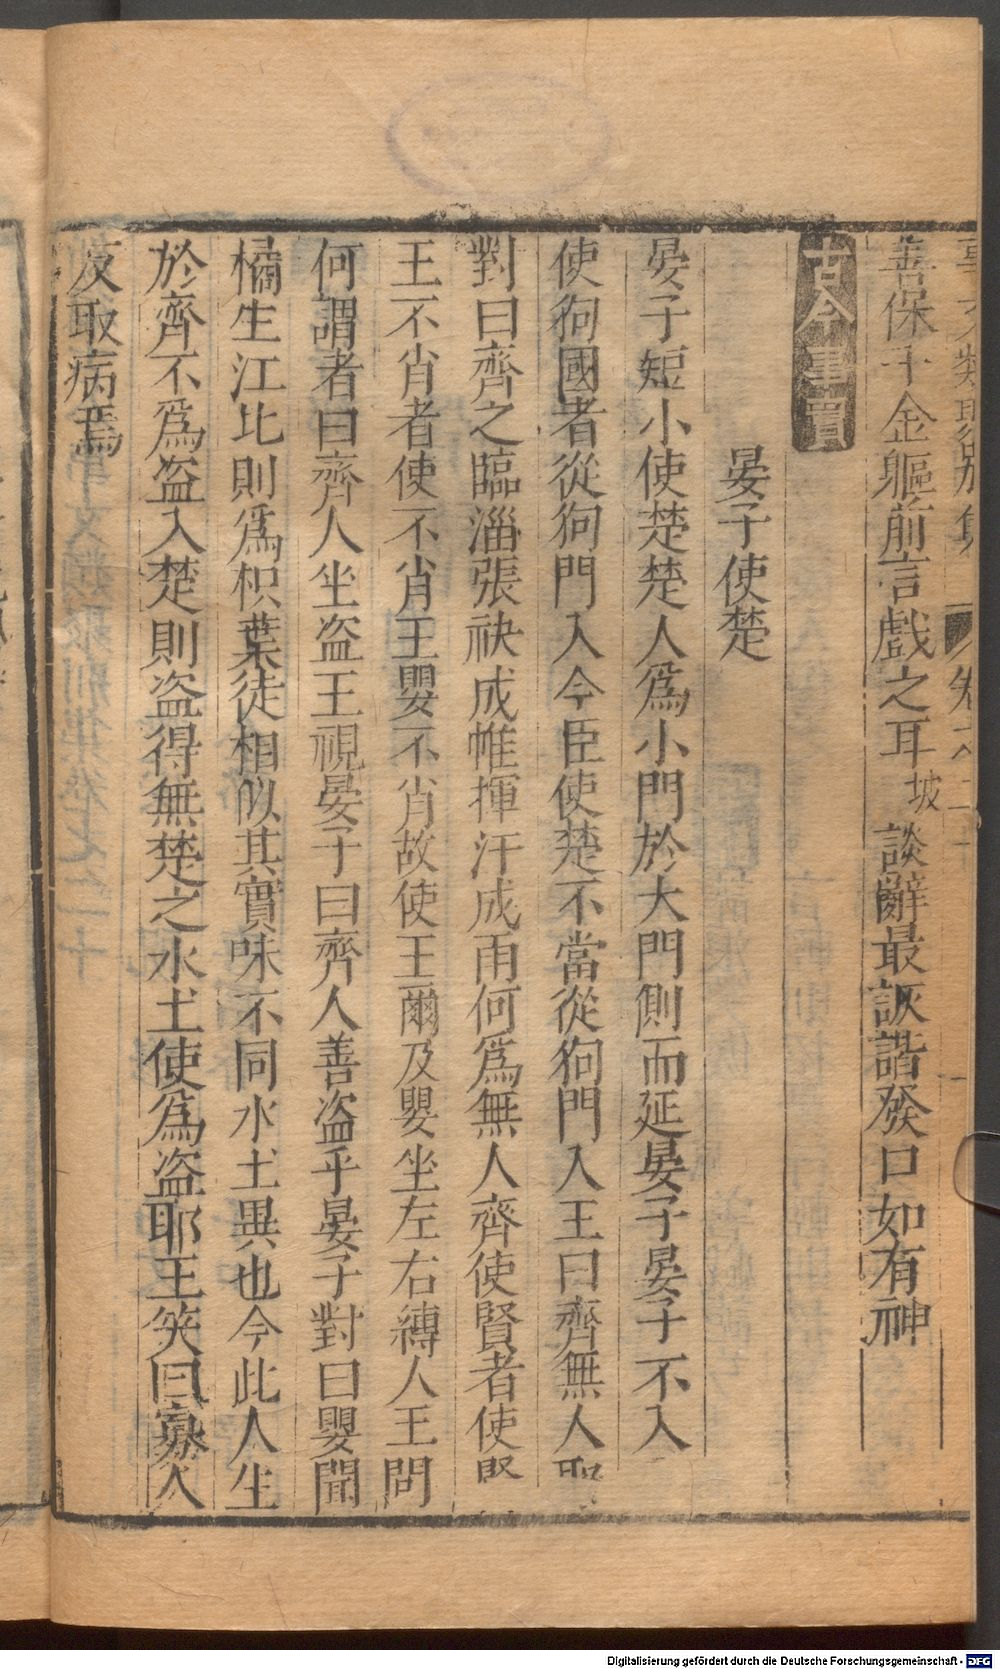 事文類聚別集 卷之二十
善保千金軀前言戲之耳坡談辭最詼諧發口如有神
古今事實
晏子使楚
晏子短小使楚楚人爲小門於大門側而延晏子晏子不入
使狗國者從狗門入今臣使楚不當從狗門入王曰齊無人耶
對曰齊之臨淄張袂成帷揮汗成雨何爲無人齊使賢者使賢
王不肖者使不肖王嬰不肖故使王爾及嬰坐左右縛人王問
何謂者曰齊人坐盜王視晏子曰齊人善盜乎晏子對曰嬰聞
橘生江北則爲枳葉徒相似其實味不同水土異也今此人生
於齊不爲盜入楚則盜得無楚之水土使爲盜耶王笑曰寡人
反取病焉
Digitalisierung gefördert durch die Deutsche Forschungsgemeinschaft - DFG